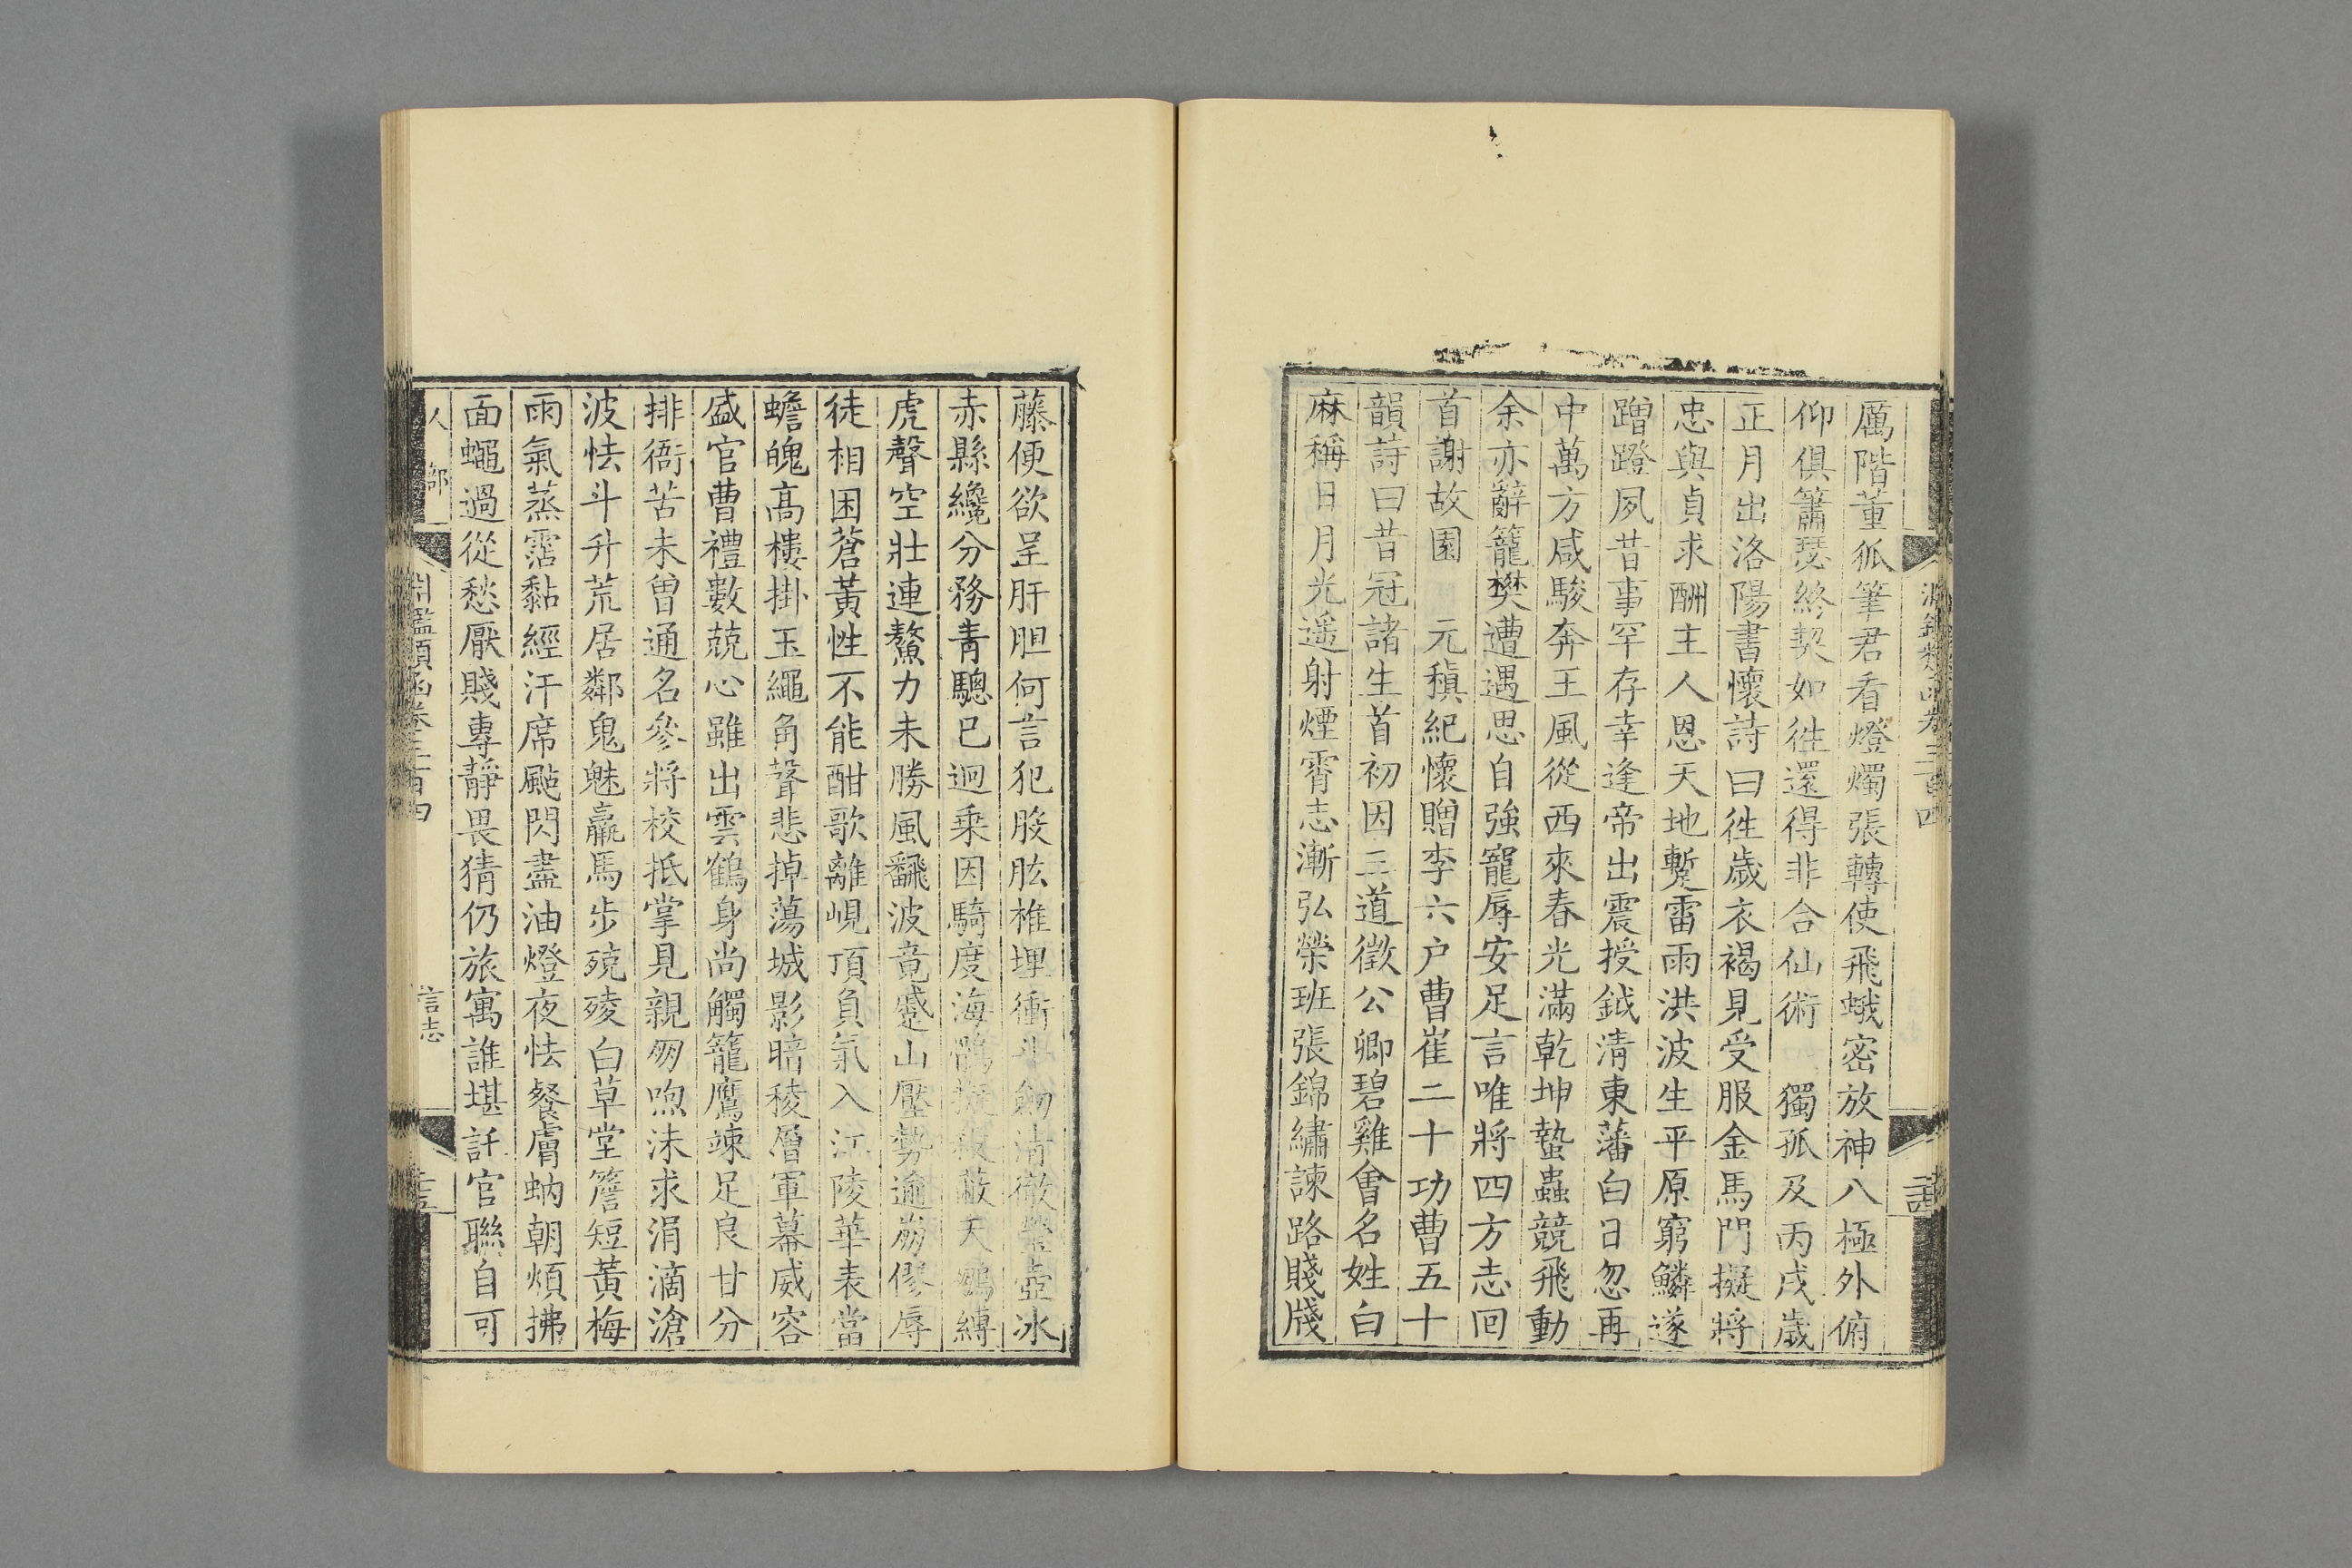 厲階董狐筆君看燈燭張轉使飛蛾密放神八極外俯
仰俱簫瑟終契如徃還得非合仙術 獨孤及丙戌歲
正月出洛陽書懷詩曰徃歲衣褐見受服金馬門擬將
忠與貞求酬主人恩天地暫雷雨洪波生平原窮鱗遂
蹭蹬夙昔事罕存幸逢帝出震授鉞清東藩白日忽再
中萬方咸駿奔王風從西來春光滿乾坤蟄蟲競飛動
余亦辭籠樊遭遇思自強寵辱安足言唯將四方志回
首謝故園 元稹紀懷贈李六户曹崔二十功曹五十
韻詩曰昔冠諸生首初因三道徵公卿碧雞會名姓白
麻稱日月光遥射煙霄志漸弘榮班張錦繡諫路賤牋
藤便欲呈肝胆何言犯股肱椎埋衝斗劒清徹瑩壺冰
赤縣纔分務青驄已迴乘因騎度海鶻擬殺蔽天鵬縛
虎聲空壯連鰲力未勝風翻波竟蹙山壓勢逾崩僇辱
徒相困蒼黃性不能酣歌離峴頂負氣入江陵華表當
蟾魄高樓掛玉繩角聲悲掉蕩城影暗稜層軍幕威容
盛官曹禮數兢心雖出雲鶴身尚觸籠鷹竦足良甘分
排衙苦未曾通名參將校抵掌見親朋喣沬求涓滴滄
波怯斗升荒居鄰鬼魅羸馬步殑㱥白草堂簷短黃梅
雨氣蒸霑黏經汗席颭閃盡油燈夜怯餐膚蚋朝煩拂
面蠅過從愁厭賤專靜畏猜仍旅寓誰堪託官聯自可
人部
淵鑑類函卷三百四
言志